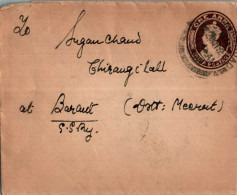 To
Sugan Chand
Chirangilall
at Baraut (Distt: Meerut)
S.S.Ry.
ONE ANNA